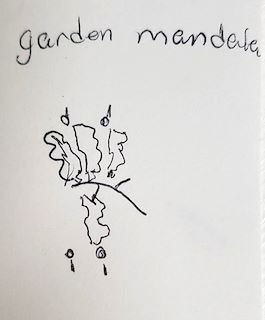 garden mandala